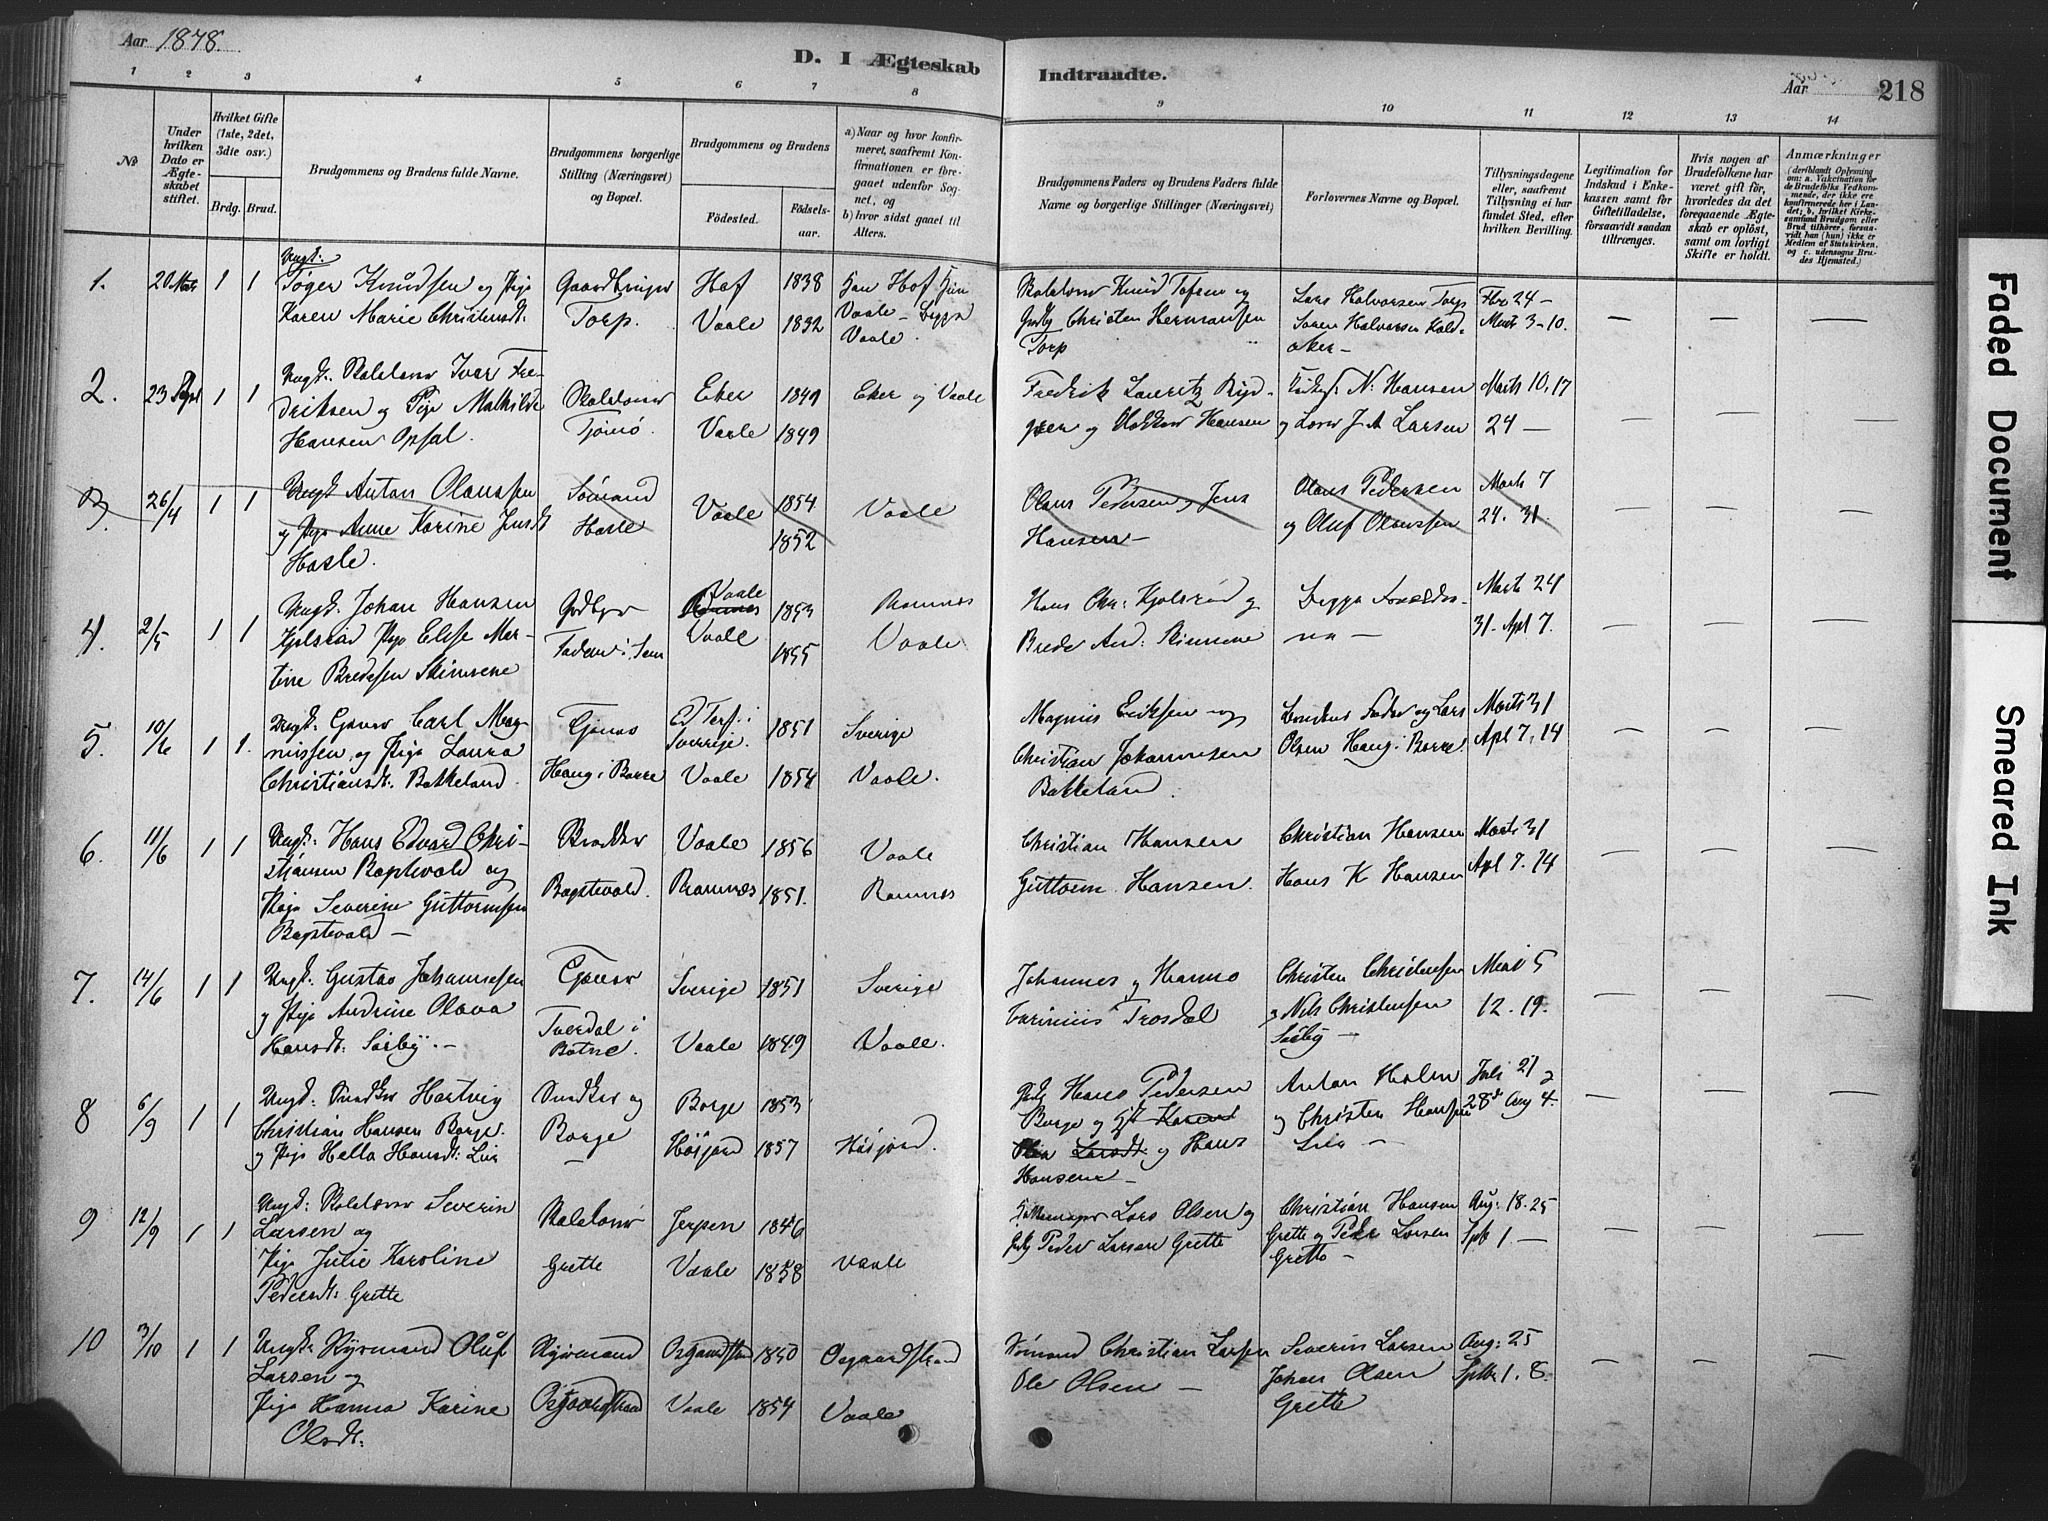 Aar 1878.
D. I Ægteskab
Indtraadte.
Aar
218
1 2 3 4 5 6 7 8 9 10 11 12 13 14
No
Under hvilken Dato er Ægteskabet stiftet.
Hvilket Gifte (1ste, 2det, 3die osv.)
Brdg. Brud.
Brudgommens og Brudens fulde Navne.
Brudgommens borgerlige Stilling (Næringsvei) og Bopæl.
Brudgommens og Brudens
Fødested. Fødselsaar.
a) Naar og hvor konfirmeret, saafremt Konfirmationen er foregaaet udenfor Sognet, og b) hvor sidst gaaet til Alters.
Brudgommens Faders og Brudens Faders fulde Navne og borgerlige Stillinger (Næringsvei)
Forlovernes Navne og Bopæl.
Tillysningsdagene eller, saafremt Tillysning ei har fundet Sted, efter hvilken Bevilling.
Legitimation for Indskud i Enkekassen samt for Giftetilladelse, forsaavidt saadan tiltrænges.
Hvis nogen af Brudefolkene har været gift før, hvorledes da det foregaaende Ægteskab er opløst, samt om lovligt Skifte er holdt.
Anmærkninger (deriblandt Oplysning om: a. Vakcination for de Brudefolks Vedkommende, der ikke ere konfirmerede her i Landet; b. hvilket Kirkesamfund Brudgom eller Brud tilhører, forsaavidt han (hun) ikke er Medlem af Statskirken, og c. udensogns Brudes Hjemsted.)
1. 20 Mats 1 1
Ungk:
Tøger Knudsen og Pige
Karen Marie Christensdt.
Torp.
Hof 1838
Vaale 1832
Han Hof Hun
Vaale - Begge
Vaale.
Knud Tofsen og
Christen Hermansen
Torp
Lars Halvorsen Torp
Soren Halvorsen
Fbr 24 -
Marts 3 - 10.
2. 23 1 1
Ungk: Ivar Fre-
driksen og Pige Mathilde
Hansen Opsal.
Tjømø.
Eker 1849
Vaale 1849
Eker og Vaale
Fredrik Lauritz
og Hansen
N. Hansen
og J. A. Larsen
Marts 10, 17
24 -
3. 26/4 1 1
Ungk Anton Olaussen
og Pige Anne Karine Jensdt
Hasle.
Sømand
Hasle
Vaale 1854
1852
Vaale
Olaus Pedersen og Jens
Hansen -
Olaus Pedersen
og Oluf Olaussen
Marts 7
24. 31.
4. 2/5 1 1
Ungk. Johan Hansen
Pige Elise Mar-
tine Bredesen
i Sem
Vaale
Ramnes 1853
Vaale 1855
Ramnes
Vaale
Hans Chr: og
Brede And:
Begge
Marts 24
31. Apl 7.
5. 10/6 1 1.
Ungk: Carl Mag-
nussen og Pige Laura
Christiansdt: Bakkeland.
Haug i Borre
i
Sverige. 1851
Vaale 1854
Sverige
Vaale.
Magnus Eriksen og
Christian Johannesen
Bakkeland.
Brudens Fader og Lars
Olsen Haug i Borre
Marts 31
Apl 7, 14
6. 11/6 1 1
Ungk: Hans Edvard Chri-
stiansen og
Pige Severine Guttormsen
Vaale 1856
Ramnes 1851.
Vaale
Ramnes
Christian Hansen
Guttorm Hansen.
Christian Hansen
Hans K Hansen
Marts 31
Apl 7. 14
7. 14/6 1 1
Ungk: Gustav Johannesen
og Pige Andrine Olava
Hansdt: Sørby. -
Tverdal i
Botne.
Sverige 1851
Vaale 1849
Sverige
Vaale.
Johannes og Hans
Trosdal
Christen Christensen
og Nils Christensen
Sørby -
Mai 5
12. 19.
8 6/9 1 1
Ungk: Hartvig
Christian Hansen Borge.
og Pige Hella Hansdt: Lie
og
Borge
Borge 1853
Høijord 1857
Høijord.
Hans Pedersen
Borge og
Larsdt: og Hans
Hansen -
Anton Holm
og Christen Hansen
Lie -
Juli 21
28de Aug 4.
9 12/9 1 1
Ungk: Severin
Larsen og
Pige Julie Karoline
Pedersdt: Grette
Grette
1846
Vaale 1858
Vaale
Lars Olsen og
Peder Larsen Grette
Christian Hansen
Grette og Peder Larsen
Grette
Aug: 18. 25
Sptb 1. -
10 3/10 1 1
Ungk: Styrmand Oluf
Larsen og
Pige Hanna Karine
Olsdt:
Styrmand
Osgaardstrand
Osgaardstrand 1850
Vaale 1854
Osgaardstrand
Vaale
Sømand Christian Larsen
Ole Olsen -
Severin Larsen
Johan Olsen
Grette
Aug: 25
Sptbr 1. 8.
Faded Document
Smeared Ink